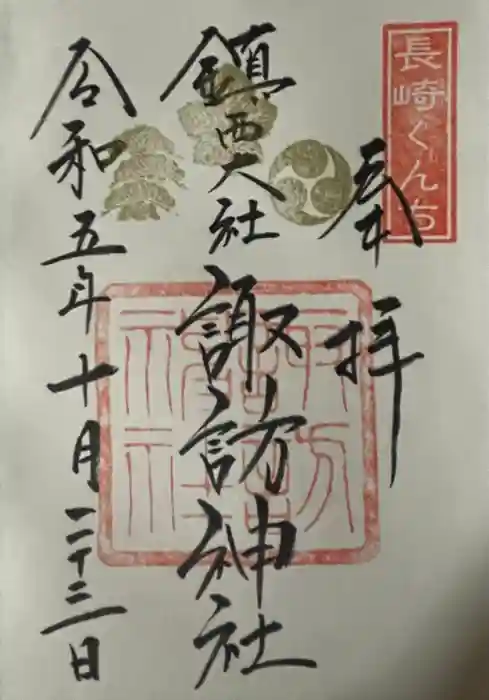 長崎くんち
奉拝
鎮西大社 諏訪神社
令和五年十月二十二日